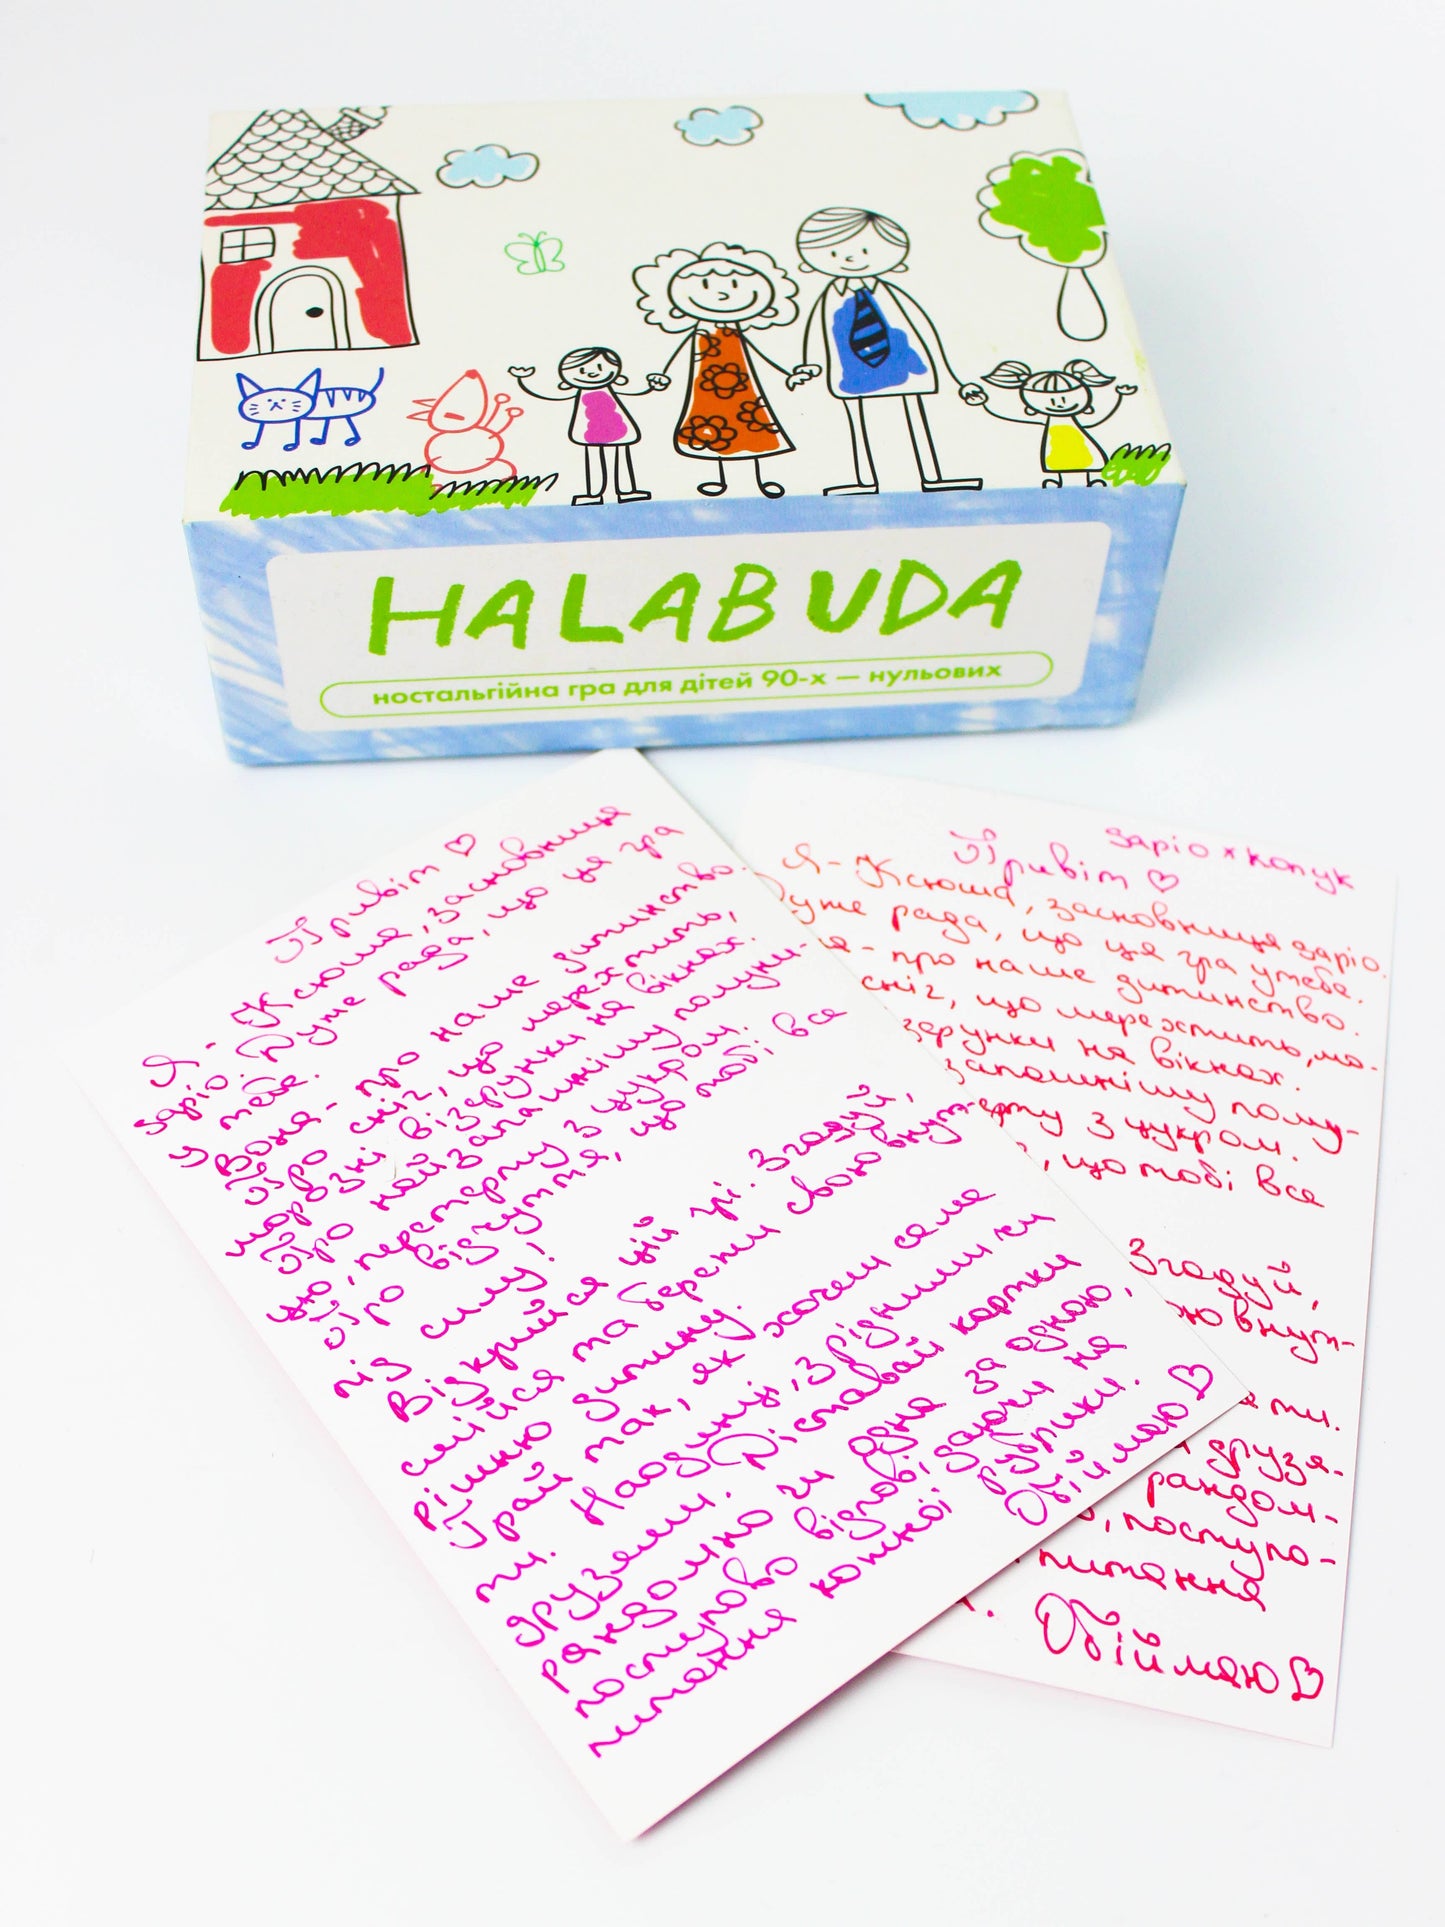 HALABUDA
ностальгійна гра для дітей 90-х — нульових
Привіт ♡
Я - Ксюша, засновниця
заріо. Дуже рада, що ця гра
у тебе.
Вона - про наше дитинство.
Про сніг, що мерехтить,
морозні візерунки на вікнах.
Про найзапашнішу полуни-
цю, перетерту з цукром.
Про відчуття, що тобі все
під силу!
Відкрийся цій грі. Згадуй,
смійся та бережи свою внут-
рішню дитину.
Грай так, як хочеш саме
ти. Наодинці, з рідними чи
друзями. Діставай картки
рандомно чи одна за одною,
поступово відповідаючи на
питання кожної рубрики.
Обіймаю ♡
заріо х копук
Привіт ♡
Я - Ксюша, засновниця заріо.
Дуже рада, що ця гра у тебе.
- про наше дитинство.
сніг, що мерехтить, мо-
зерунки на вікнах.
запашнішу полу-
ерту з цукром.
, що тобі все
Згадуй,
ю внут-
ти.
друзя-
рандом-
, поступо-
питання
Обіймаю ♡